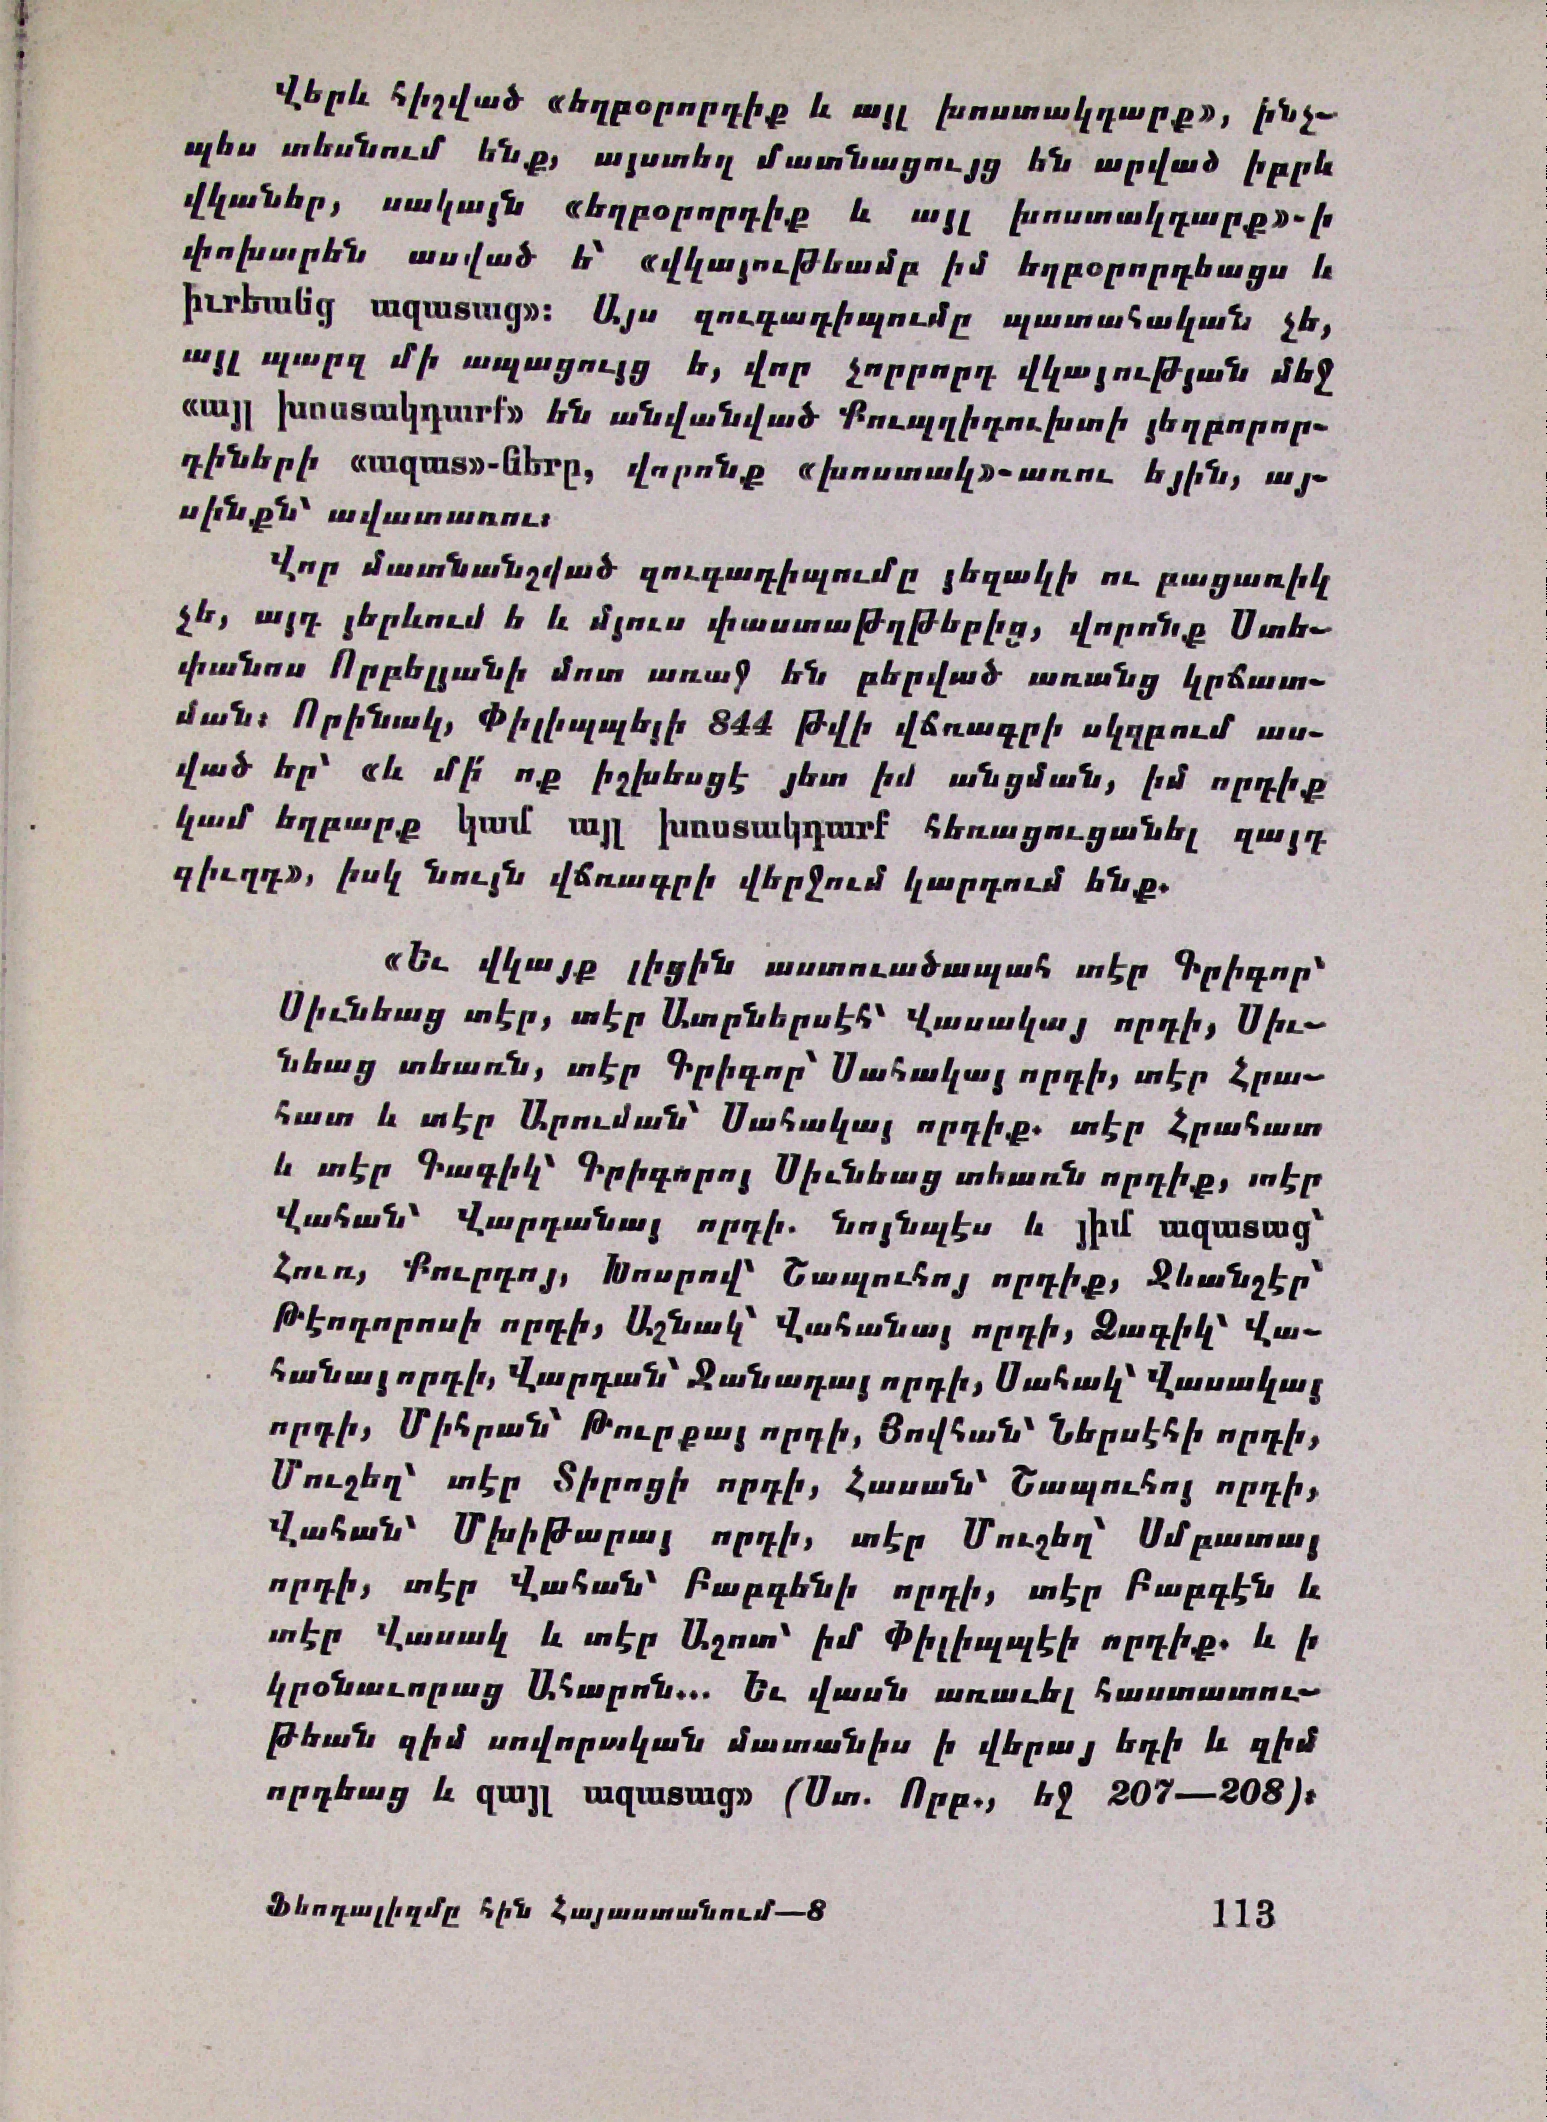 Վերև հիշված «եղբօրորդիք և այլ խոստակդարք», ինչ-
պես տեսնում ենք, այստեղ մատնացույց են արված իբրև
վկաներ, սակայն «եղբօրորդիք և այլ խոստակդարք»-ի
փոխարեն ասված ե՝ «վկայութեամբ իմ եղբօրորդեացս և
իւրեանց ազատաց»։ Այս զուգադիպումը պատահական չե,
այլ պարզ մի ապացույց ե, վոր չորրորդ վկայության մեջ
«այլ խոստակդարք» են անվանված Քուպղիդուխտի յեղբորոր-
դիների «ազատ»-ները, վորոնք «խոստակ»-առու եյին, այ-
սինքն՝ ավատառու։
Վոր մատնանշված զուգադիպումը յեզակի ու բացառիկ
չե, այդ յերևում ե և մյուս փաստաթղթերից, վորոնք Ստե-
փանոս Որբելյանի մոտ առաջ են բերված առանց կրճատ-
ման։ Որինակ, Փիլիպպեյի 844 թվի վճռագրի սկզբում աս-
ված եր՝ «և մի՛ ոք իշխեսցէ յետ իմ անցման, իմ որդիք
կամ եղբարք կամ այլ խոստակդարք հեռացուցանել զայդ
գիւղդ», իսկ նույն վճռագրի վերջում կարդում ենք.
«Եւ վկայք լիցին աստուածապահ տէր Գրիգոր՝
Սիւնեաց տէր, տէր Ատրներսէհ՝ Վասակայ որդի, Սիւ-
նեաց տեառն, տէր Գրիգոր՝ Սահակայ որդի, տէր Հրա-
հատ և տէր Արուման՝ Սահակայ որդիք. տէր Հրահատ
և տէր Գագիկ՝ Գրիգորոյ Սիւնեաց տեառն որդիք, տէր
Վահան՝ Վարդանայ որդի. նոյնպէս և յիմ ազատաց՝
Հուռ, Քուրդոյ, Խոսրով՝ Շապուհոյ որդիք, Ջևանշէր՝
Թէոդորոսի որդի, Աշնակ՝ Վահանայ որդի, Ձագիկ՝ Վա-
հանայ որդի, Վարդան՝ Ջանադայ որդի, Սահակ՝ Վասակայ
որդի, Միհրան՝ Թուրքայ որդի, Յովհան՝ Ներսէհի որդի,
Մուշեղ՝ տէր Տիրոցի որդի, Հասան՝ Շապուհոյ որդի,
Վահան՝ Մխիթարայ որդի, տէր Մուշեղ՝ Սմբատայ
որդի, տէր Վահան՝ Բաբգենի որդի, տէր Բաբգէն և
տէր Վասակ և տէր Աշոտ՝ իմ Փիլիպպէի որդիք. և ի
կրօնաւորաց Ահարոն... Եւ վասն առաւել հաստատու-
թեան զիմ սովորական մատանիս ի վերայ եդի և զիմ
որդեաց և զայլ ազատաց» (Ստ. Որբ., եջ 207—208)։
Ֆեոդալիզմը հին Հայաստանում—8
113